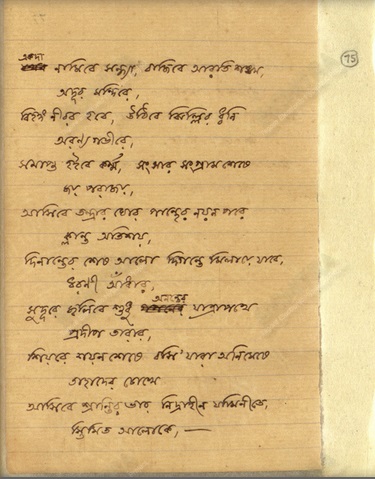 একদা
নামিবে সন্ধ্যা, বাজিবে আরতিশঙ্খ,
অদূর মন্দিরে,
বিহঙ্গ নীরব হবে, উঠিবে ঝিল্লির ধ্বনি
অরণ্য গভীরে,
সমাপ্ত হইবে কর্ম্ম, সংসার সংগ্রাম শেষে
জয় পরাজয়,
আসিবে তন্দ্রার ঘোর পান্থের নয়ন পরে
ক্লান্ত অতিশয়,
দিনান্তের শেষ আলো দিগন্তে মিলায়ে যাবে,
ধরণী আঁধার,
সুদূরে জ্বলিবে শুধু অনন্তের যাত্রাপথে
প্রদীপ তারার,
শিয়রে নয়ন শেষে বসি' যারা অনিমেষে
তাহাদের চোখে
আসিবে শ্রান্তির ভার নিদ্রাহীন যামিনীতে,
স্তিমিত আলোকে, —
75